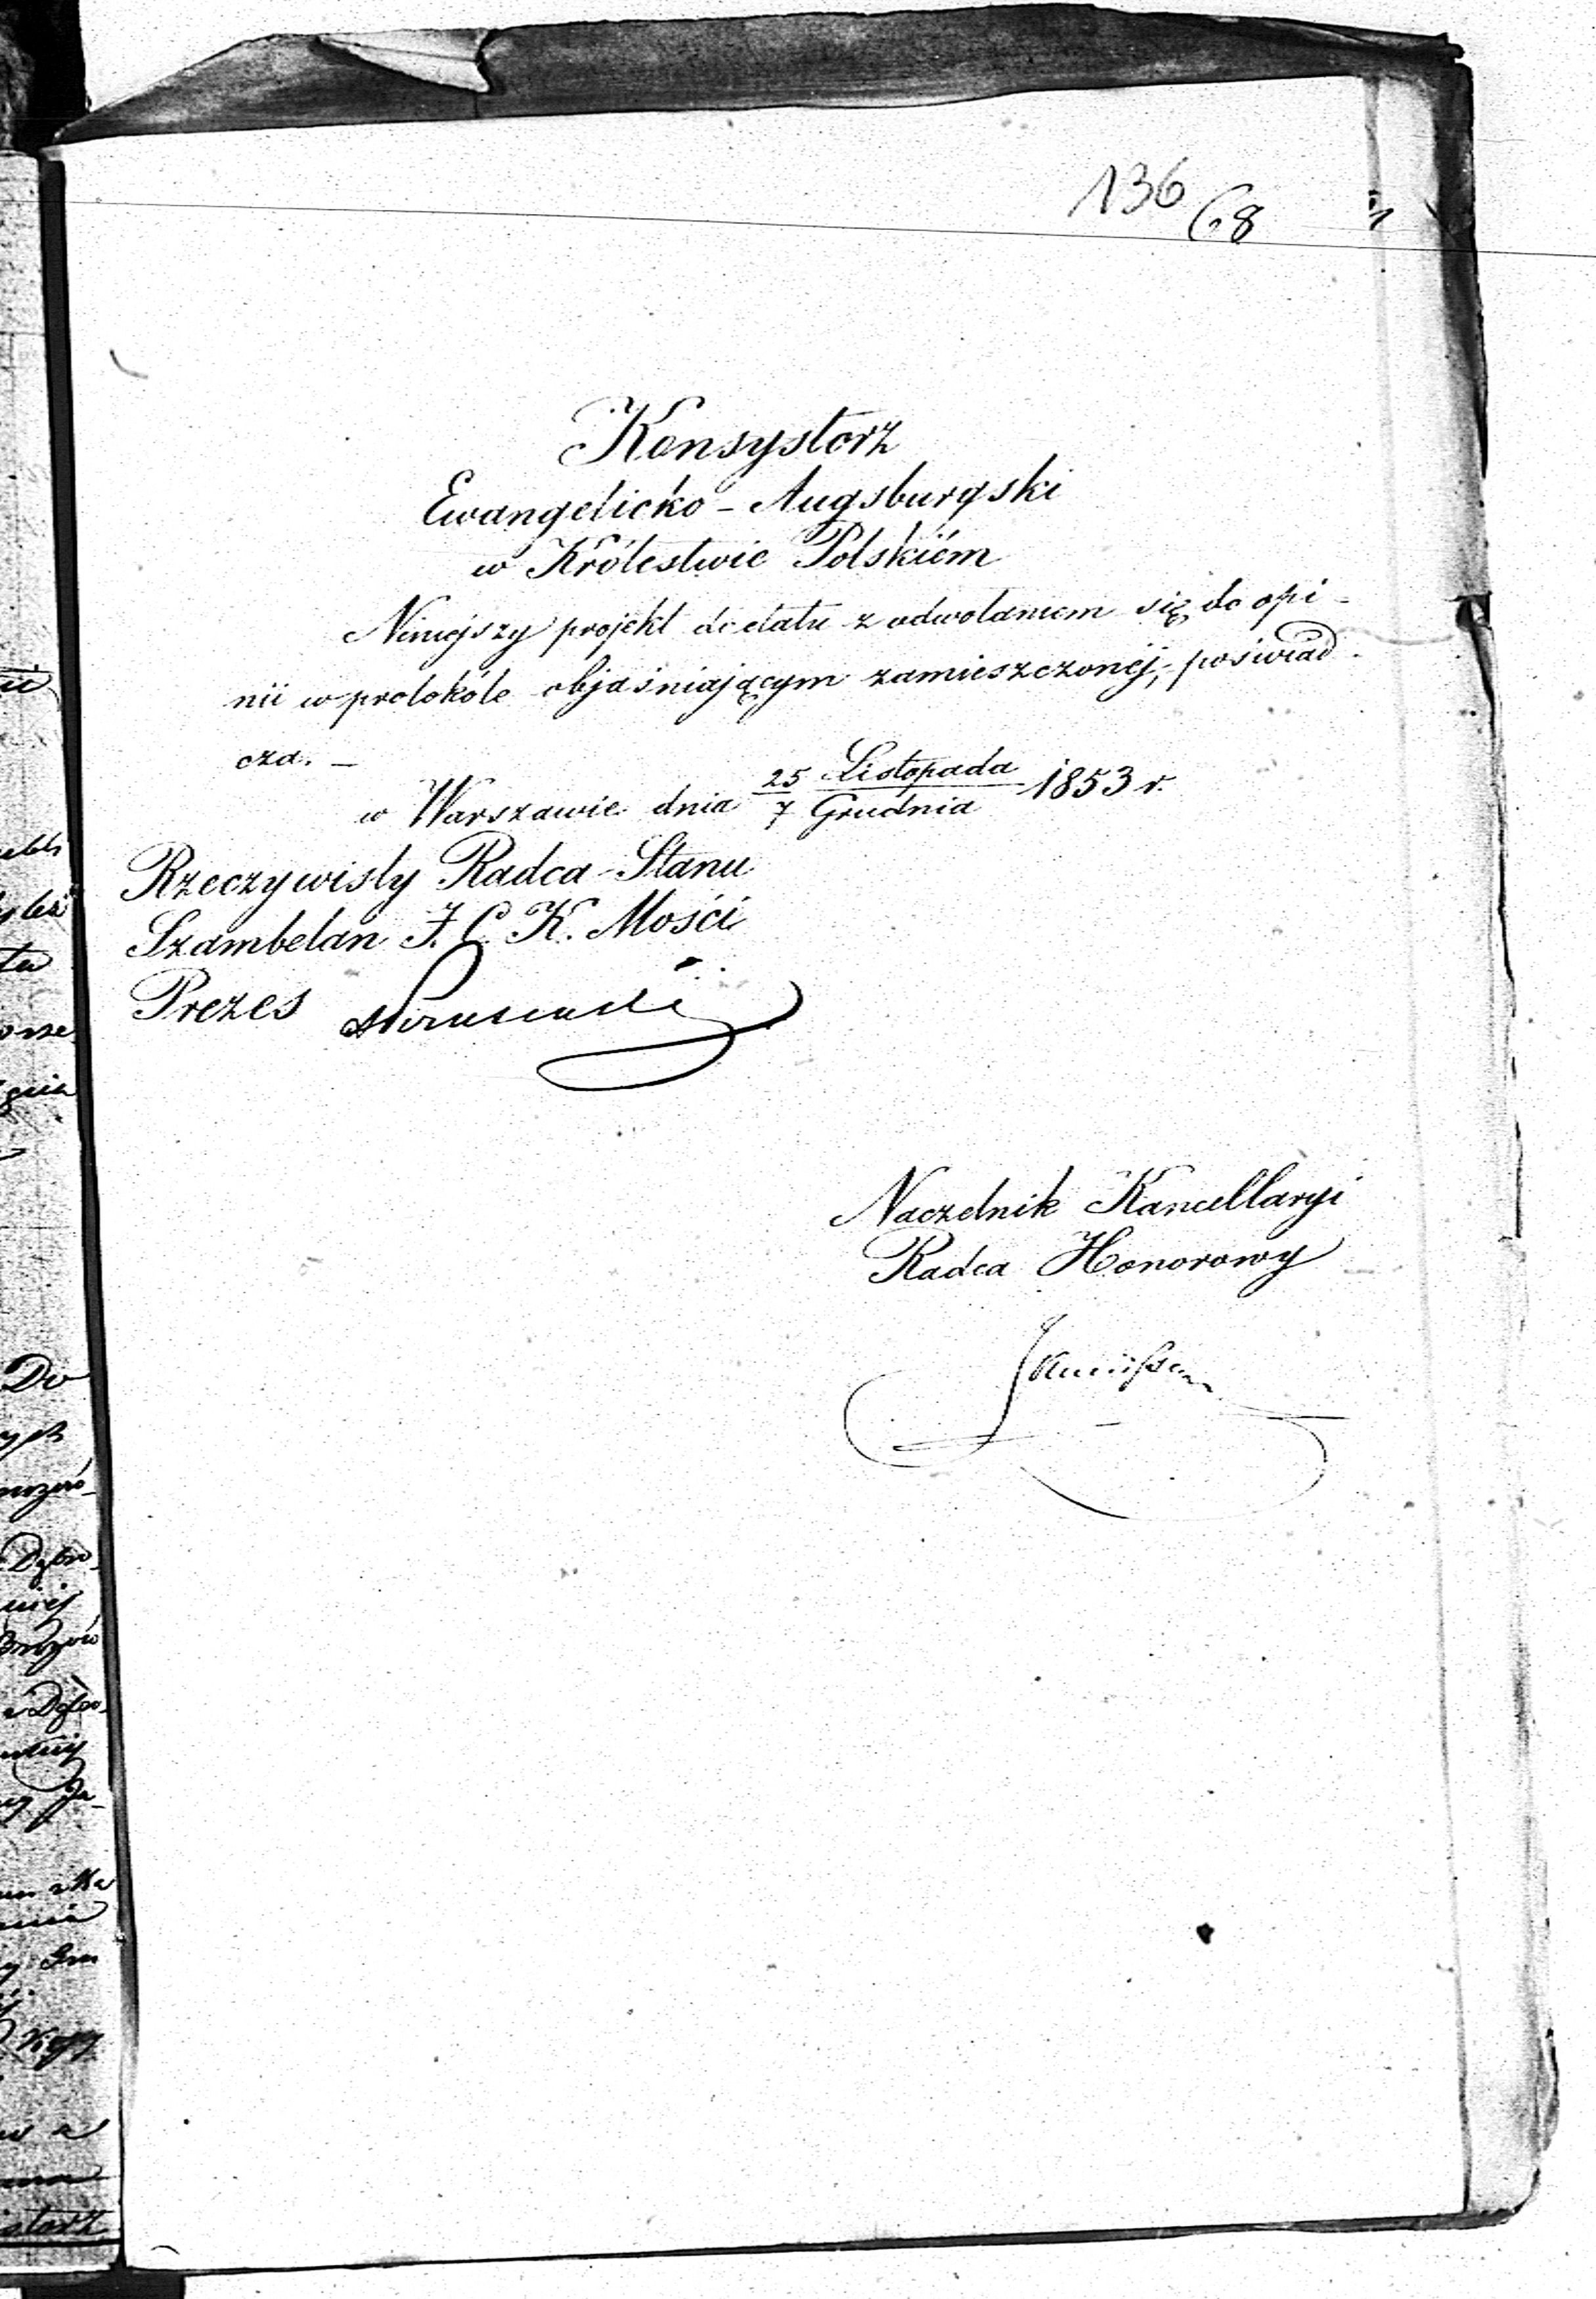 136
68
Konsystorz
Ewangelicko - Augsburgski
w Królestwie Polskiém
Niniejszy projekt do etatu z odwołaniem się do opi-
nii w protokóle objaśniającym zamieszczonéj, poświad-
cza. -
w Warszawie dnia 25 Listopada / 7 Grudnia 1853 r.
Rzeczywisty Radca Stanu
Szambelan J. C. K. Mości
Prezes
Naczelnik Kancellaryi
Radca Honorowy
Do